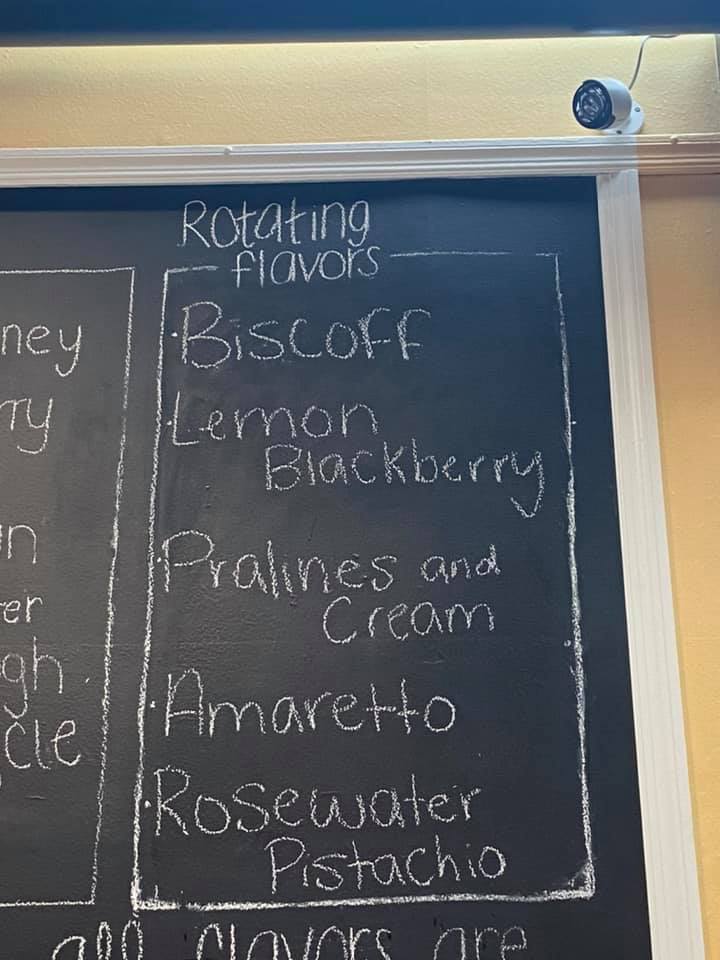 Rotating
flavors
· Biscoff
· Lemon
Blackberry
· Pralines and
Cream
· Amaretto
· Rosewater
Pistachio
all flavors are